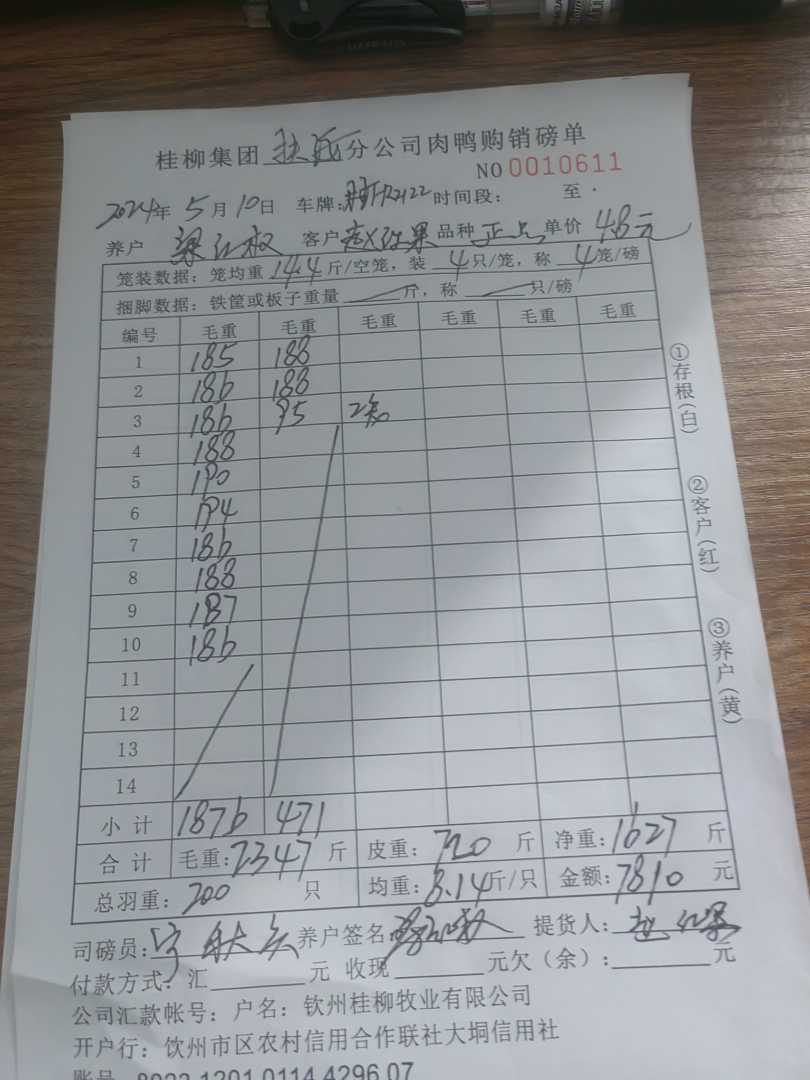 桂柳集团 分公司肉鸭购销磅单
NO 0010611
2024年 5月10日 车牌: 时间段: 至
养户 梁 客户 品种 正 单价 4.8元
笼装数据：笼均重 14.4 斤/空笼，装 4 只/笼，称 4 笼/磅
捆脚数据：铁筐或板子重量 斤，称 只/磅
编号 毛重 毛重 毛重 毛重 毛重 毛重
1 185 188
2 186 188
3 186 95 2笼
4 188
5 190
6 194
7 186
8 188
9 187
10 186
11
12
13
14
小 计 1876 471
合 计 毛重: 2347 斤 皮重: 720 斤 净重: 1627 斤
总羽重: 200 只 均重: 8.14 斤/只 金额: 7810 元
司磅员: 养户签名: 提货人:
付款方式: 汇 元 收现 元欠（余）: 元
公司汇款帐号: 户名: 钦州桂柳牧业有限公司
开户行: 饮州市区农村信用合作联社大垌信用社
账号 8023 1201 0114 4296 07
①存根(白)
②客户(红)
③养户(黄)